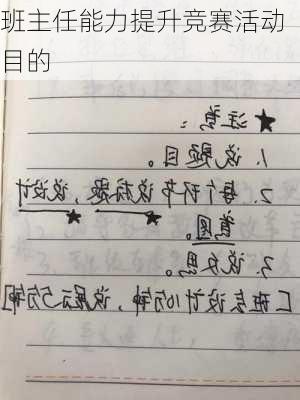 班主任能力提升竞赛活动
目的
★注意：
1. 说题目。
2. 每个环节说标题，说设计
意图。
3. 说反思。
[班会设计10分钟，说展示5分钟]